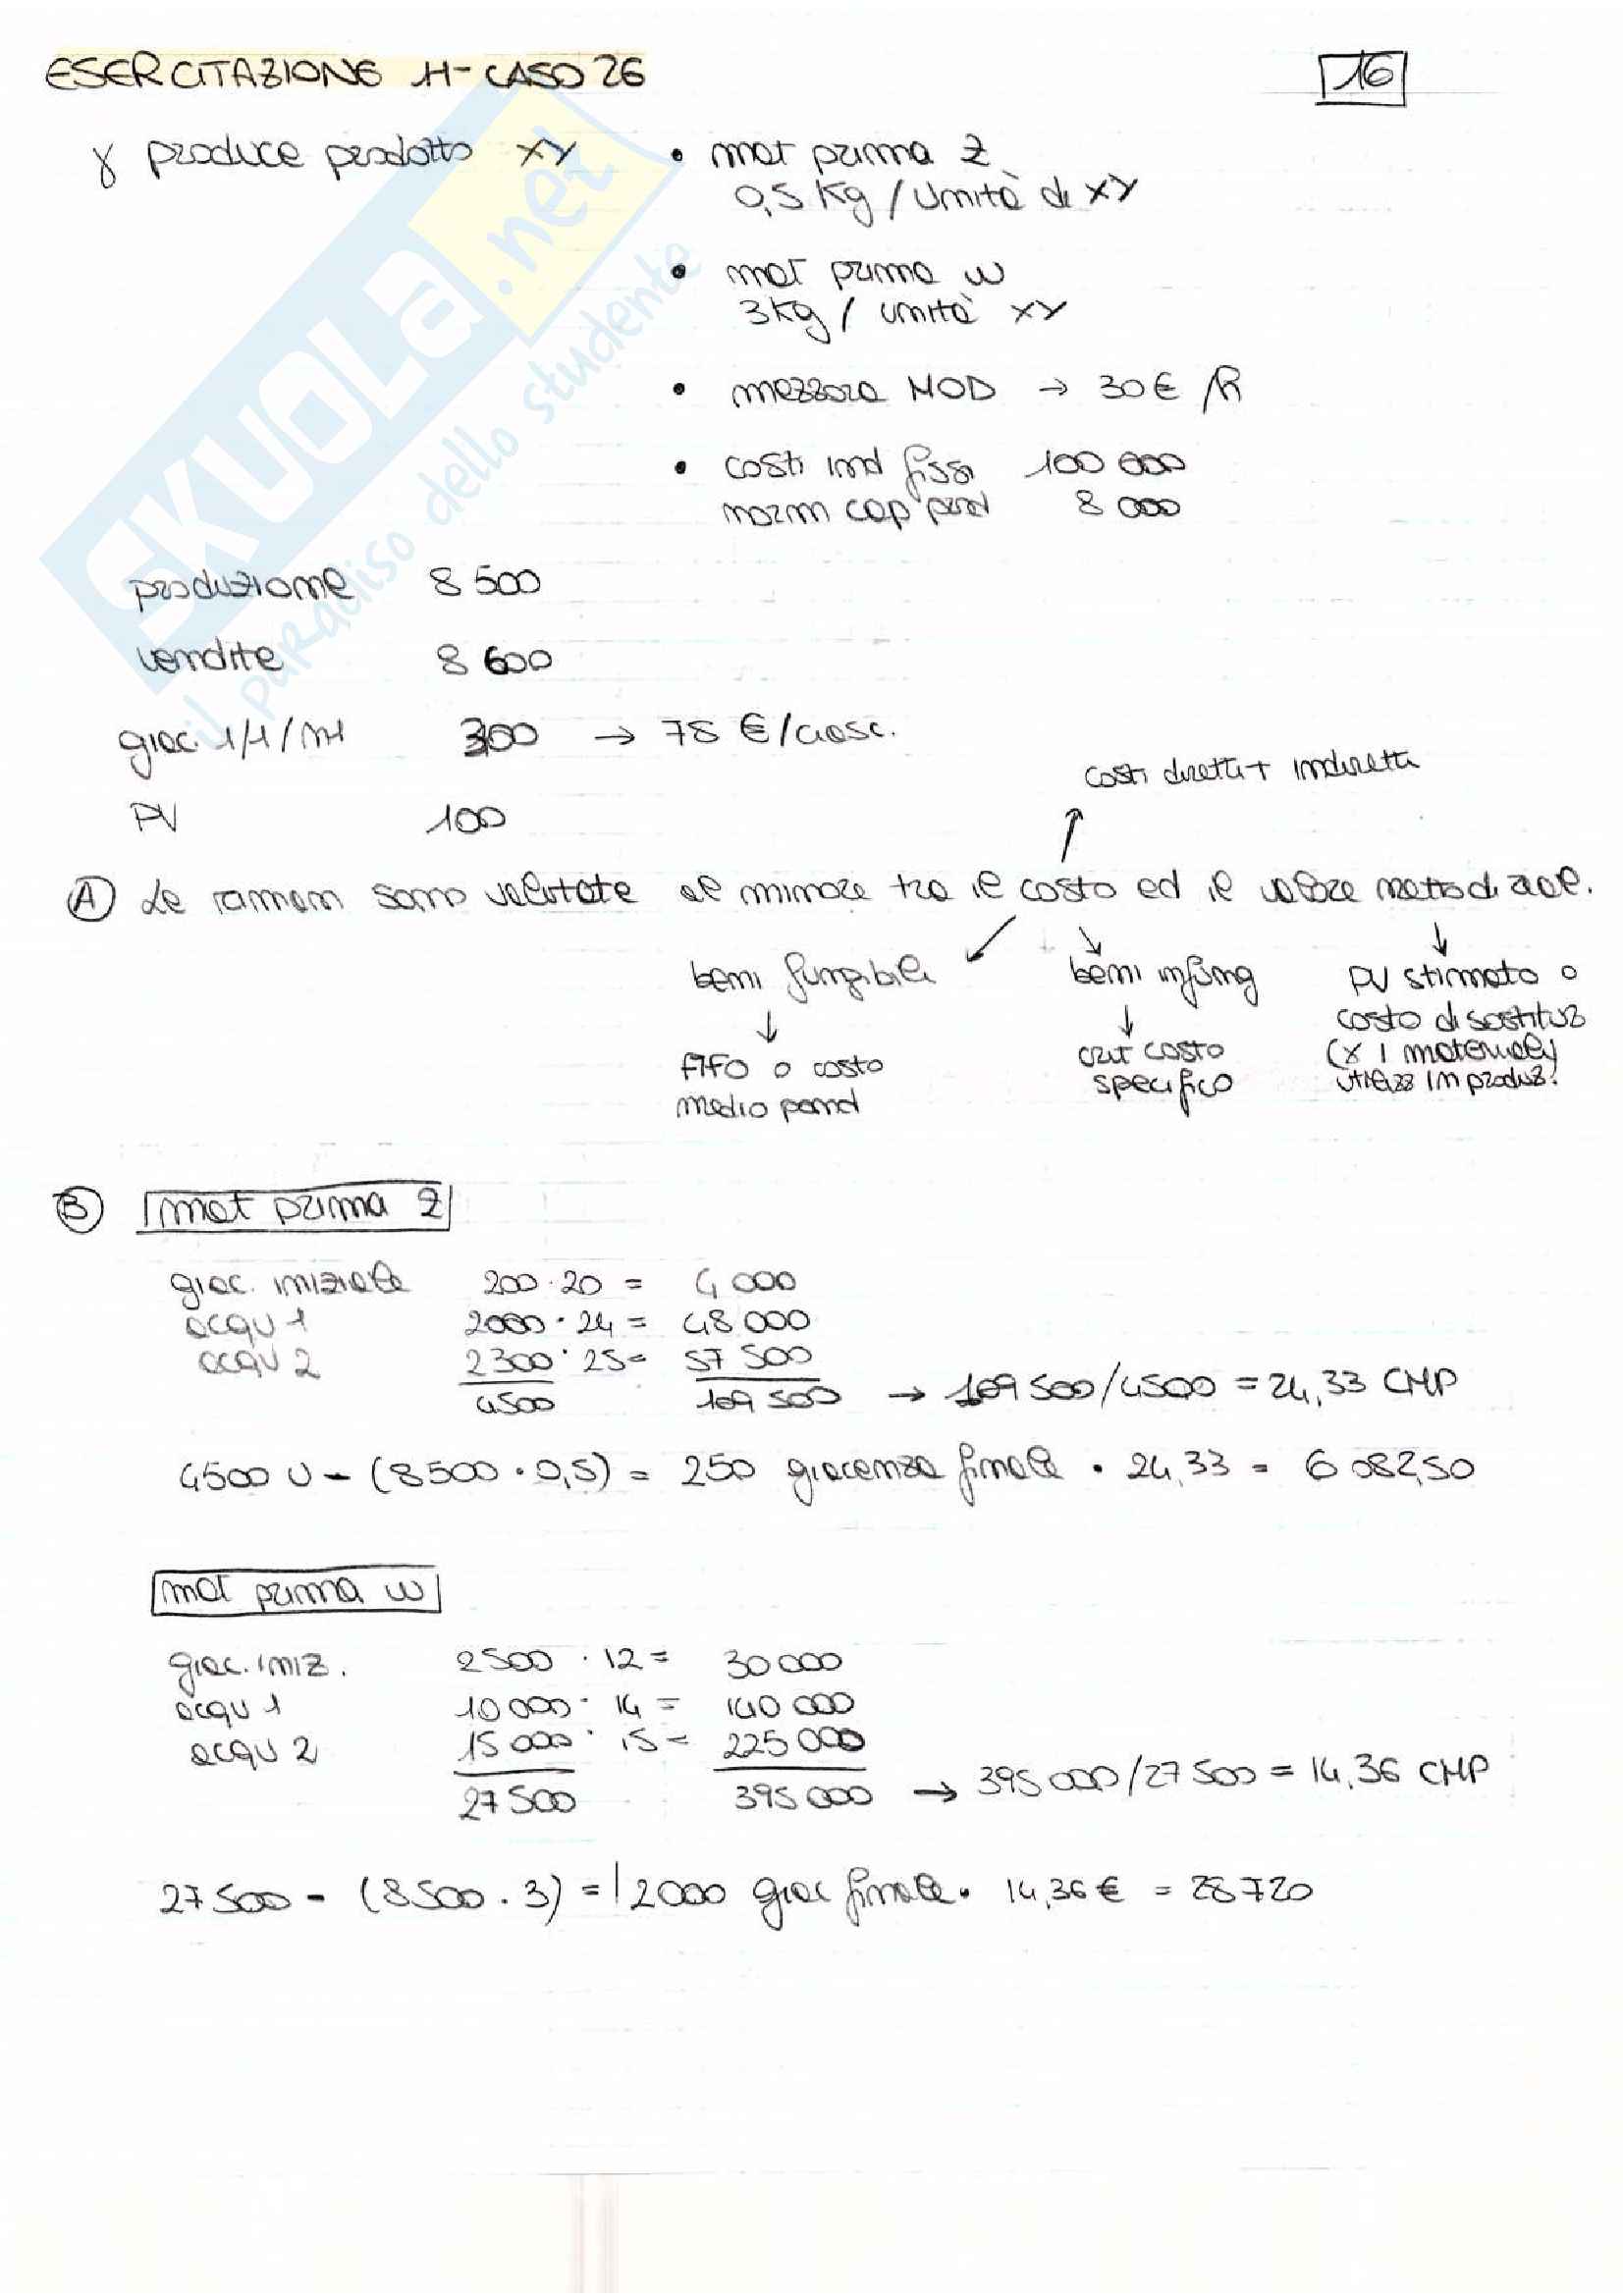 ESERCITAZIONE 11 - CASO 26
16
γ produce prodotto XY
• mat prima Z
0,5 Kg / Unità di XY
• mat prima W
3Kg / unità XY
• mezzora MOD → 30 € /h
• costi ind fissi 100 000
norm cap prod 8 000
produzione 8 500
vendite 8 600
giac. 1/1/n+1 300 → 78 €/ciasc.
PV 100
costi diretti + indiretti
A Le rimanen sono valutate al minore tra il costo ed il valore netto di real.
beni fungibili
FIFO o costo
medio pond
beni infung
crit costo
specifico
PV stimato o
costo di sostituz
(x i materiali
utilizz in produz.
B mat prima Z
giac. iniziale 200 · 20 = 4 000
acqu 1 2000 · 24 = 48 000
acqu 2 2300 · 25 = 57 500
4500 109 500 → 109 500/4500 = 24,33 CMP
4500 U - (8500 · 0,5) = 250 giacenza finale · 24,33 = 6 082,50
mat prima W
giac. iniz. 2500 · 12 = 30 000
acqu 1 10 000 · 14 = 140 000
acqu 2 15 000 · 15 = 225 000
27 500 395 000 → 395 000/27 500 = 14,36 CMP
27 500 - (8500 · 3) = 2000 giac finale · 14,36 € = 28720
SKUOLA.net
il paradiso dello studente